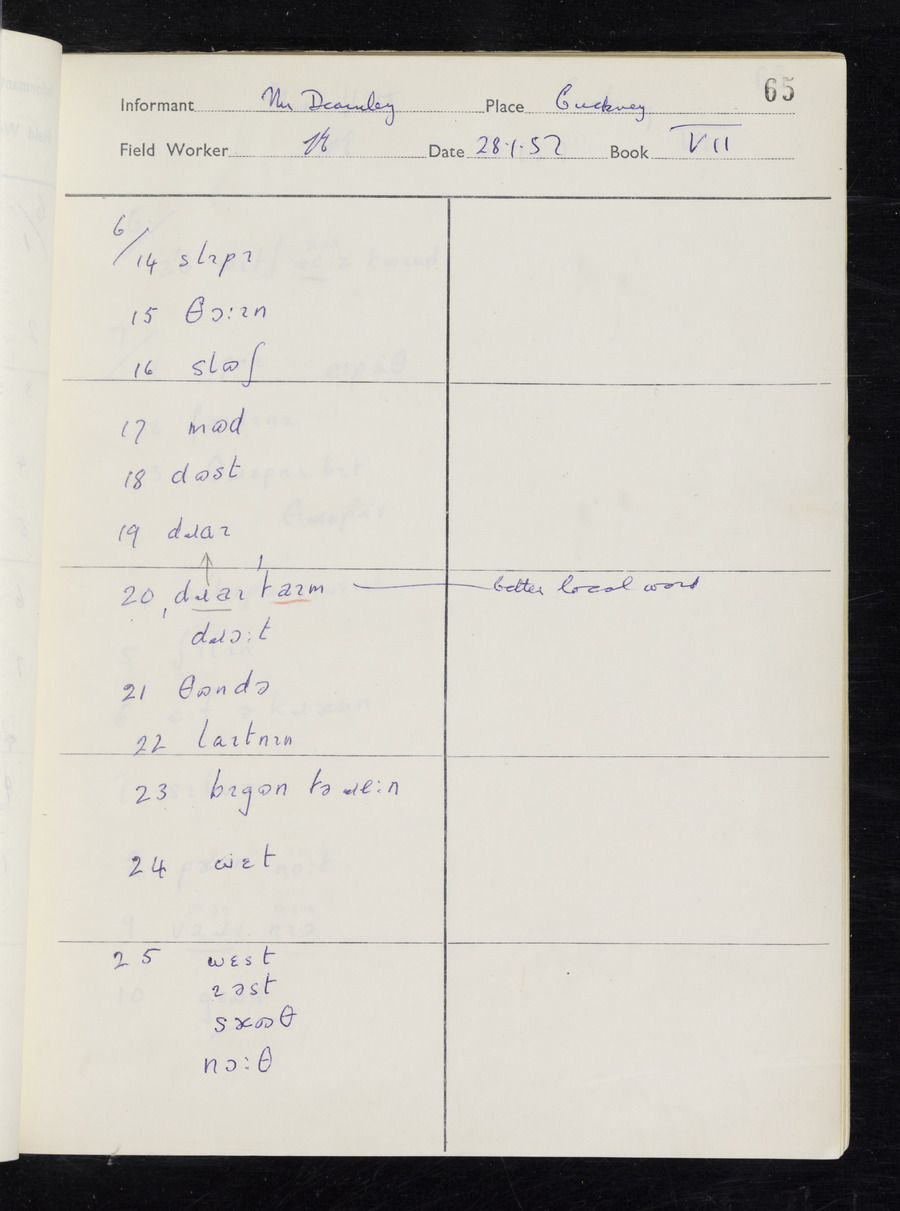 65
Informant Mr Dearnley Place Cuckney
Field Worker Date 28.1.57 Book VII
6/14 slɪpɪ
15 θɔ:ɪn
16 slɷʃ
17 mɷd
18 dɷst
19 dɹaɪ
20 ˌdɹaɪ ˈtaɪm better local word
dɹɔ:t
21 θɷndə
22 laɪtnɪn
23 bɪgɷn tə ɹe:n
24 wɛt
25 wɛst
ɪəst
sæɷθ
nɔ:θ